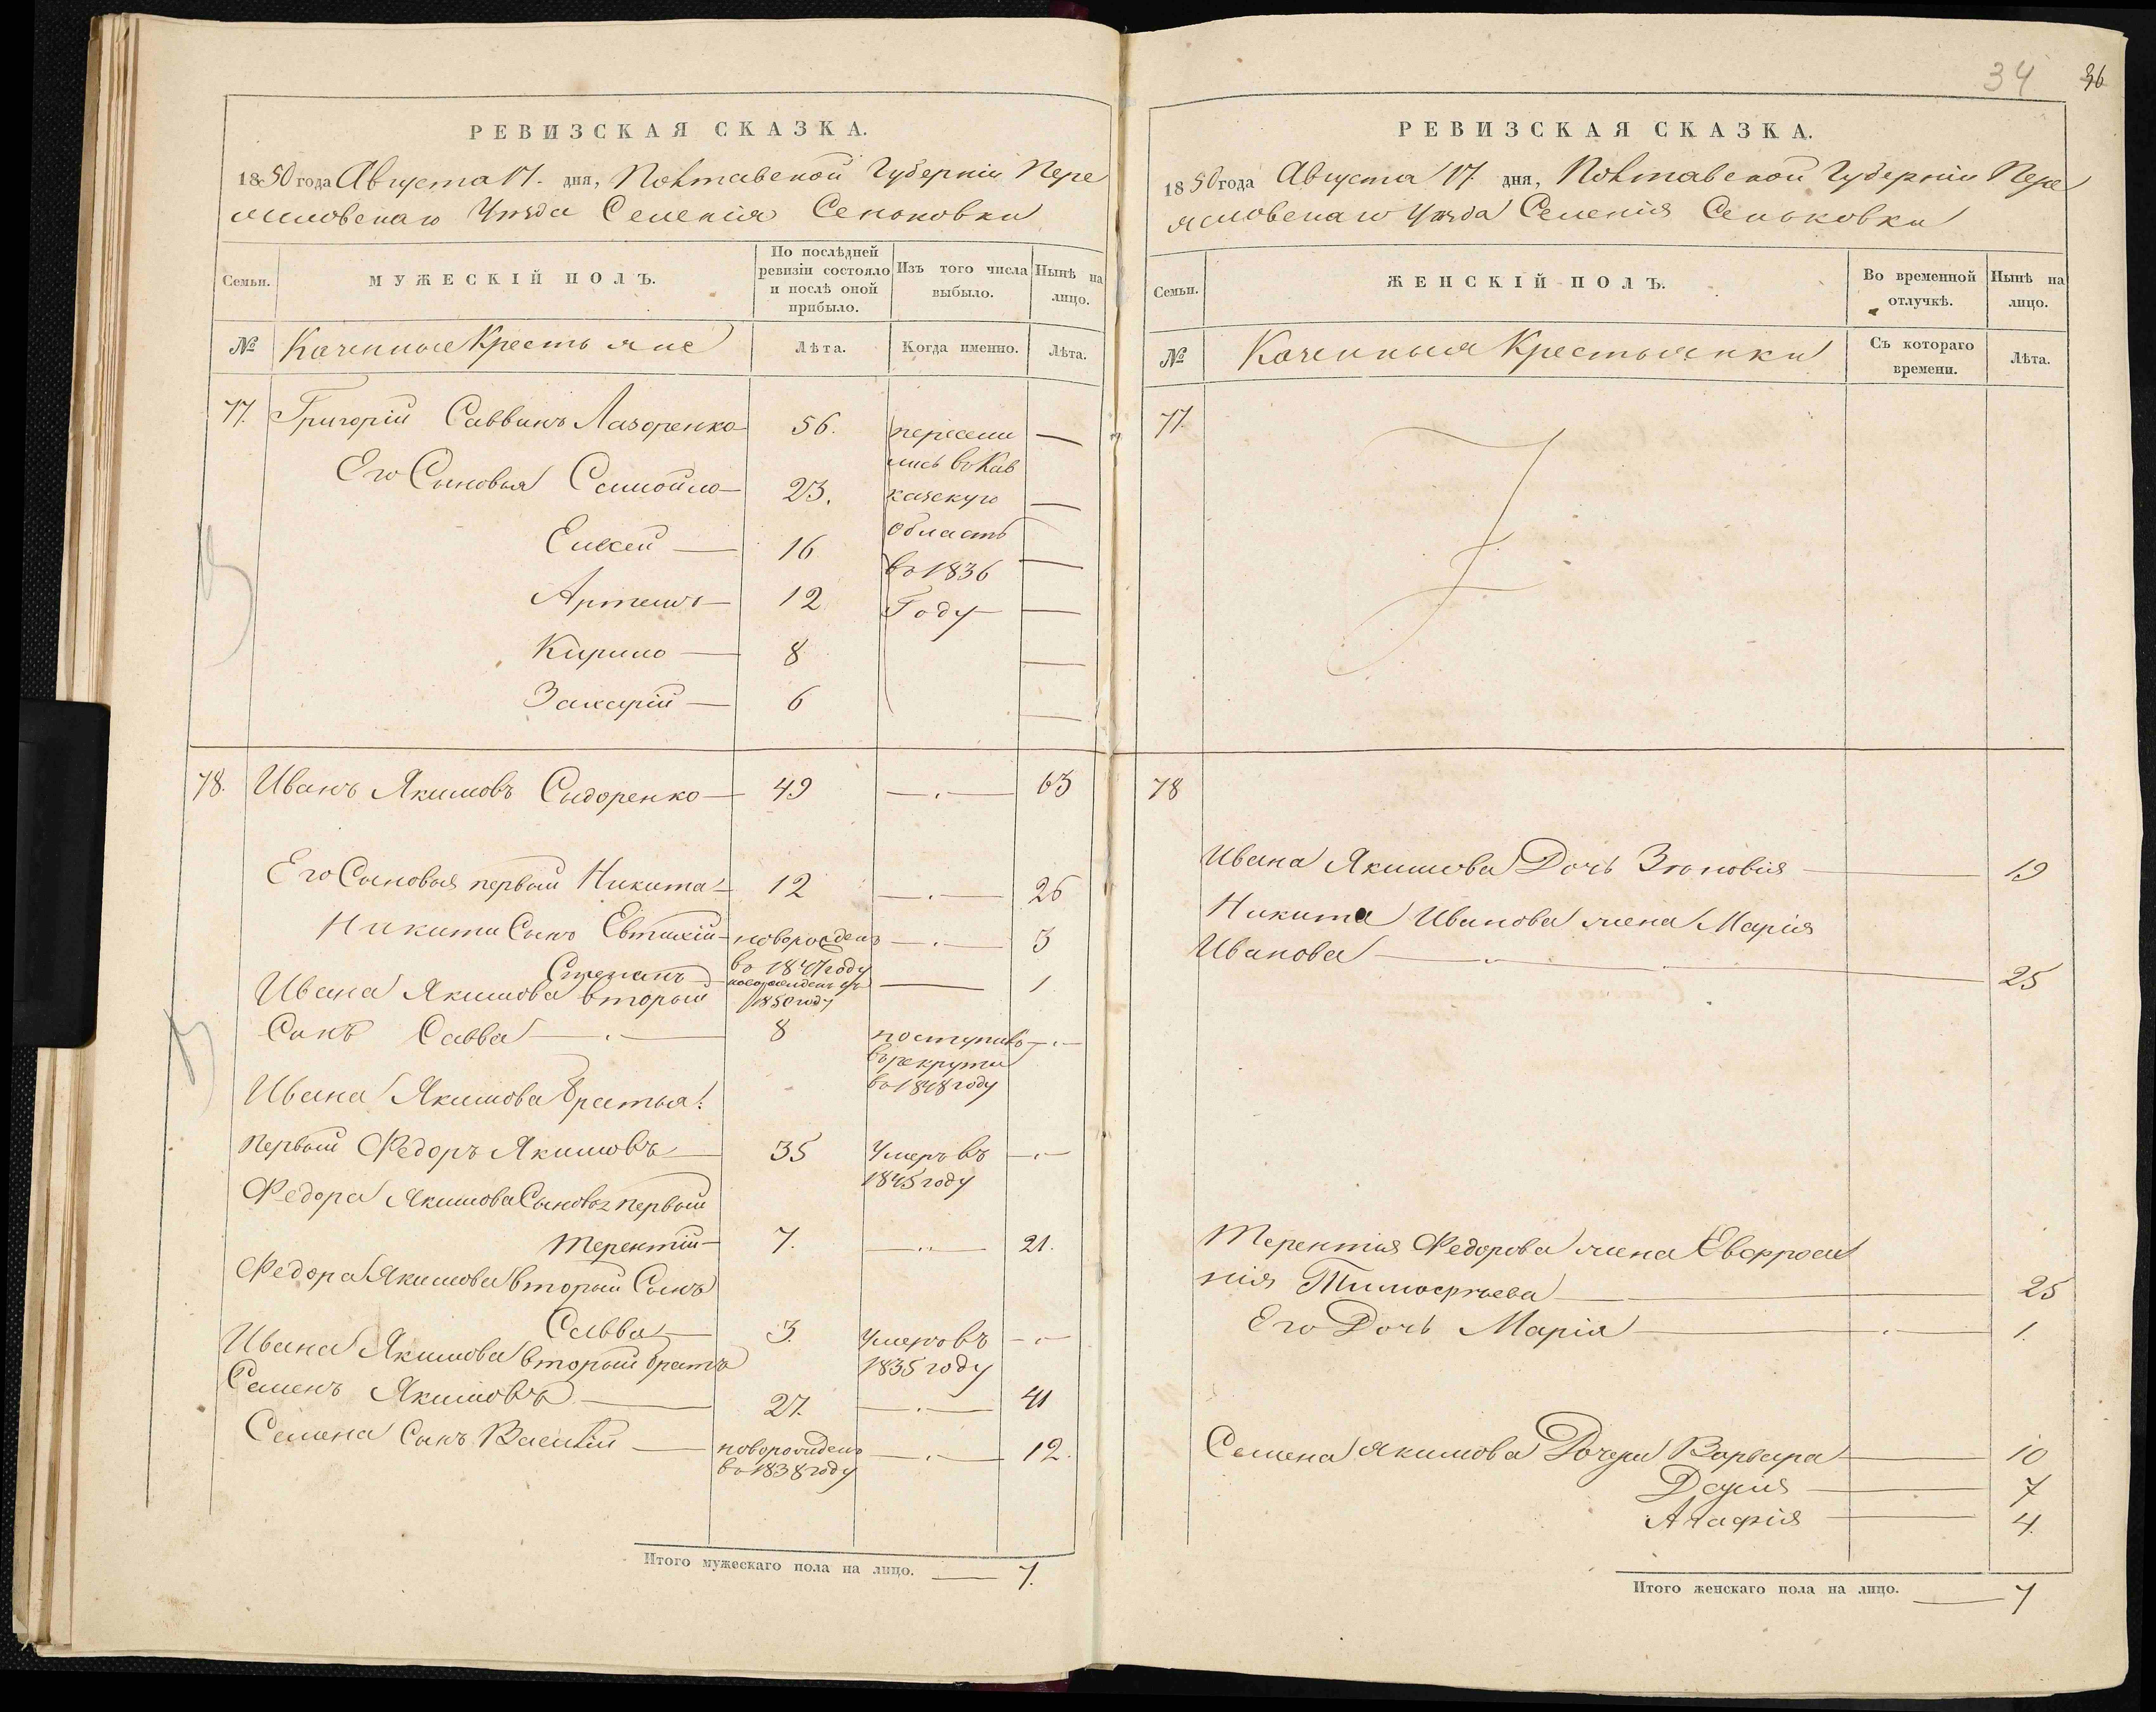 34 36
РЕВИЗСКАЯ СКАЗКА.
1850 года Августа 17. дня, Полтавской Губерніи Пере
яславскаго Уѣзда Селенія Сеньковки
Семьи.
МУЖЕСКІЙ ПОЛЪ.
По послѣдней
ревизіи состояло
и послѣ оной
прибыло.
Изъ того числа
выбыло.
Нынѣ на
лицо.
№
Казенные Крестьяне
Лѣта.
Когда именно.
Лѣта.
77. Григорій Саввинъ Лазоренко 56. пересели —
лись въ Кав
Его Сыновья Самойло — 23. казскую —
область
Елисей — 16 —
въ 1836
Артемъ — 12 Году —
Кирило — 8 —
Захарій — 6 —
78. Иванъ Якимовъ Сидоренко — 49 — 63
Его Сыновья первый Никита — 12 — 26
Никиты Сынъ Евтихій — новорожденъ — 3
въ 1847 году
Степанъ — новорожденъ въ — 1
Ивана Якимова вторый 1850 году
Сынъ Савва — 8 поступивъ —
въ рекруты
въ 1848 году
Ивана Якимова братья:
Первый Федоръ Якимовъ — 35 Умеръ въ —
1845 году
Федора Якимова Сыновья первый
Терентій — 7. — 21.
Федора Якимова вторый Сынъ
Савва — 3. умеръ въ —
Ивана Якимова вторый братъ 1835 году
Семенъ Якимовъ — 27. — 41
Семена Сынъ Василій — новорожденъ — 12.
въ 1838 году
Итого мужескаго пола на лицо. — 7.
РЕВИЗСКАЯ СКАЗКА.
1850 года Августа 17. дня, Полтавской Губерніи Пере
яславскаго Уѣзда Селенія Сеньковки
Семьи.
ЖЕНСКІЙ ПОЛЪ.
Во временной
отлучкѣ.
Нынѣ на
лицо.
№
Казенныя Крестьянки
Съ котораго
времени.
Лѣта.
77.
78
Ивана Якимова Дочь Зѣновія — 19
Никита Иванова жена Марія
Иванова — 25
Терентія Федорова жена Евфроси
нія Тимофѣева — 25
Его Дочь Марія — 1.
Семена Якимова Дочери Варвара — 10
Дарія — 7
Агафія — 4.
Итого женскаго пола на лицо. — 7